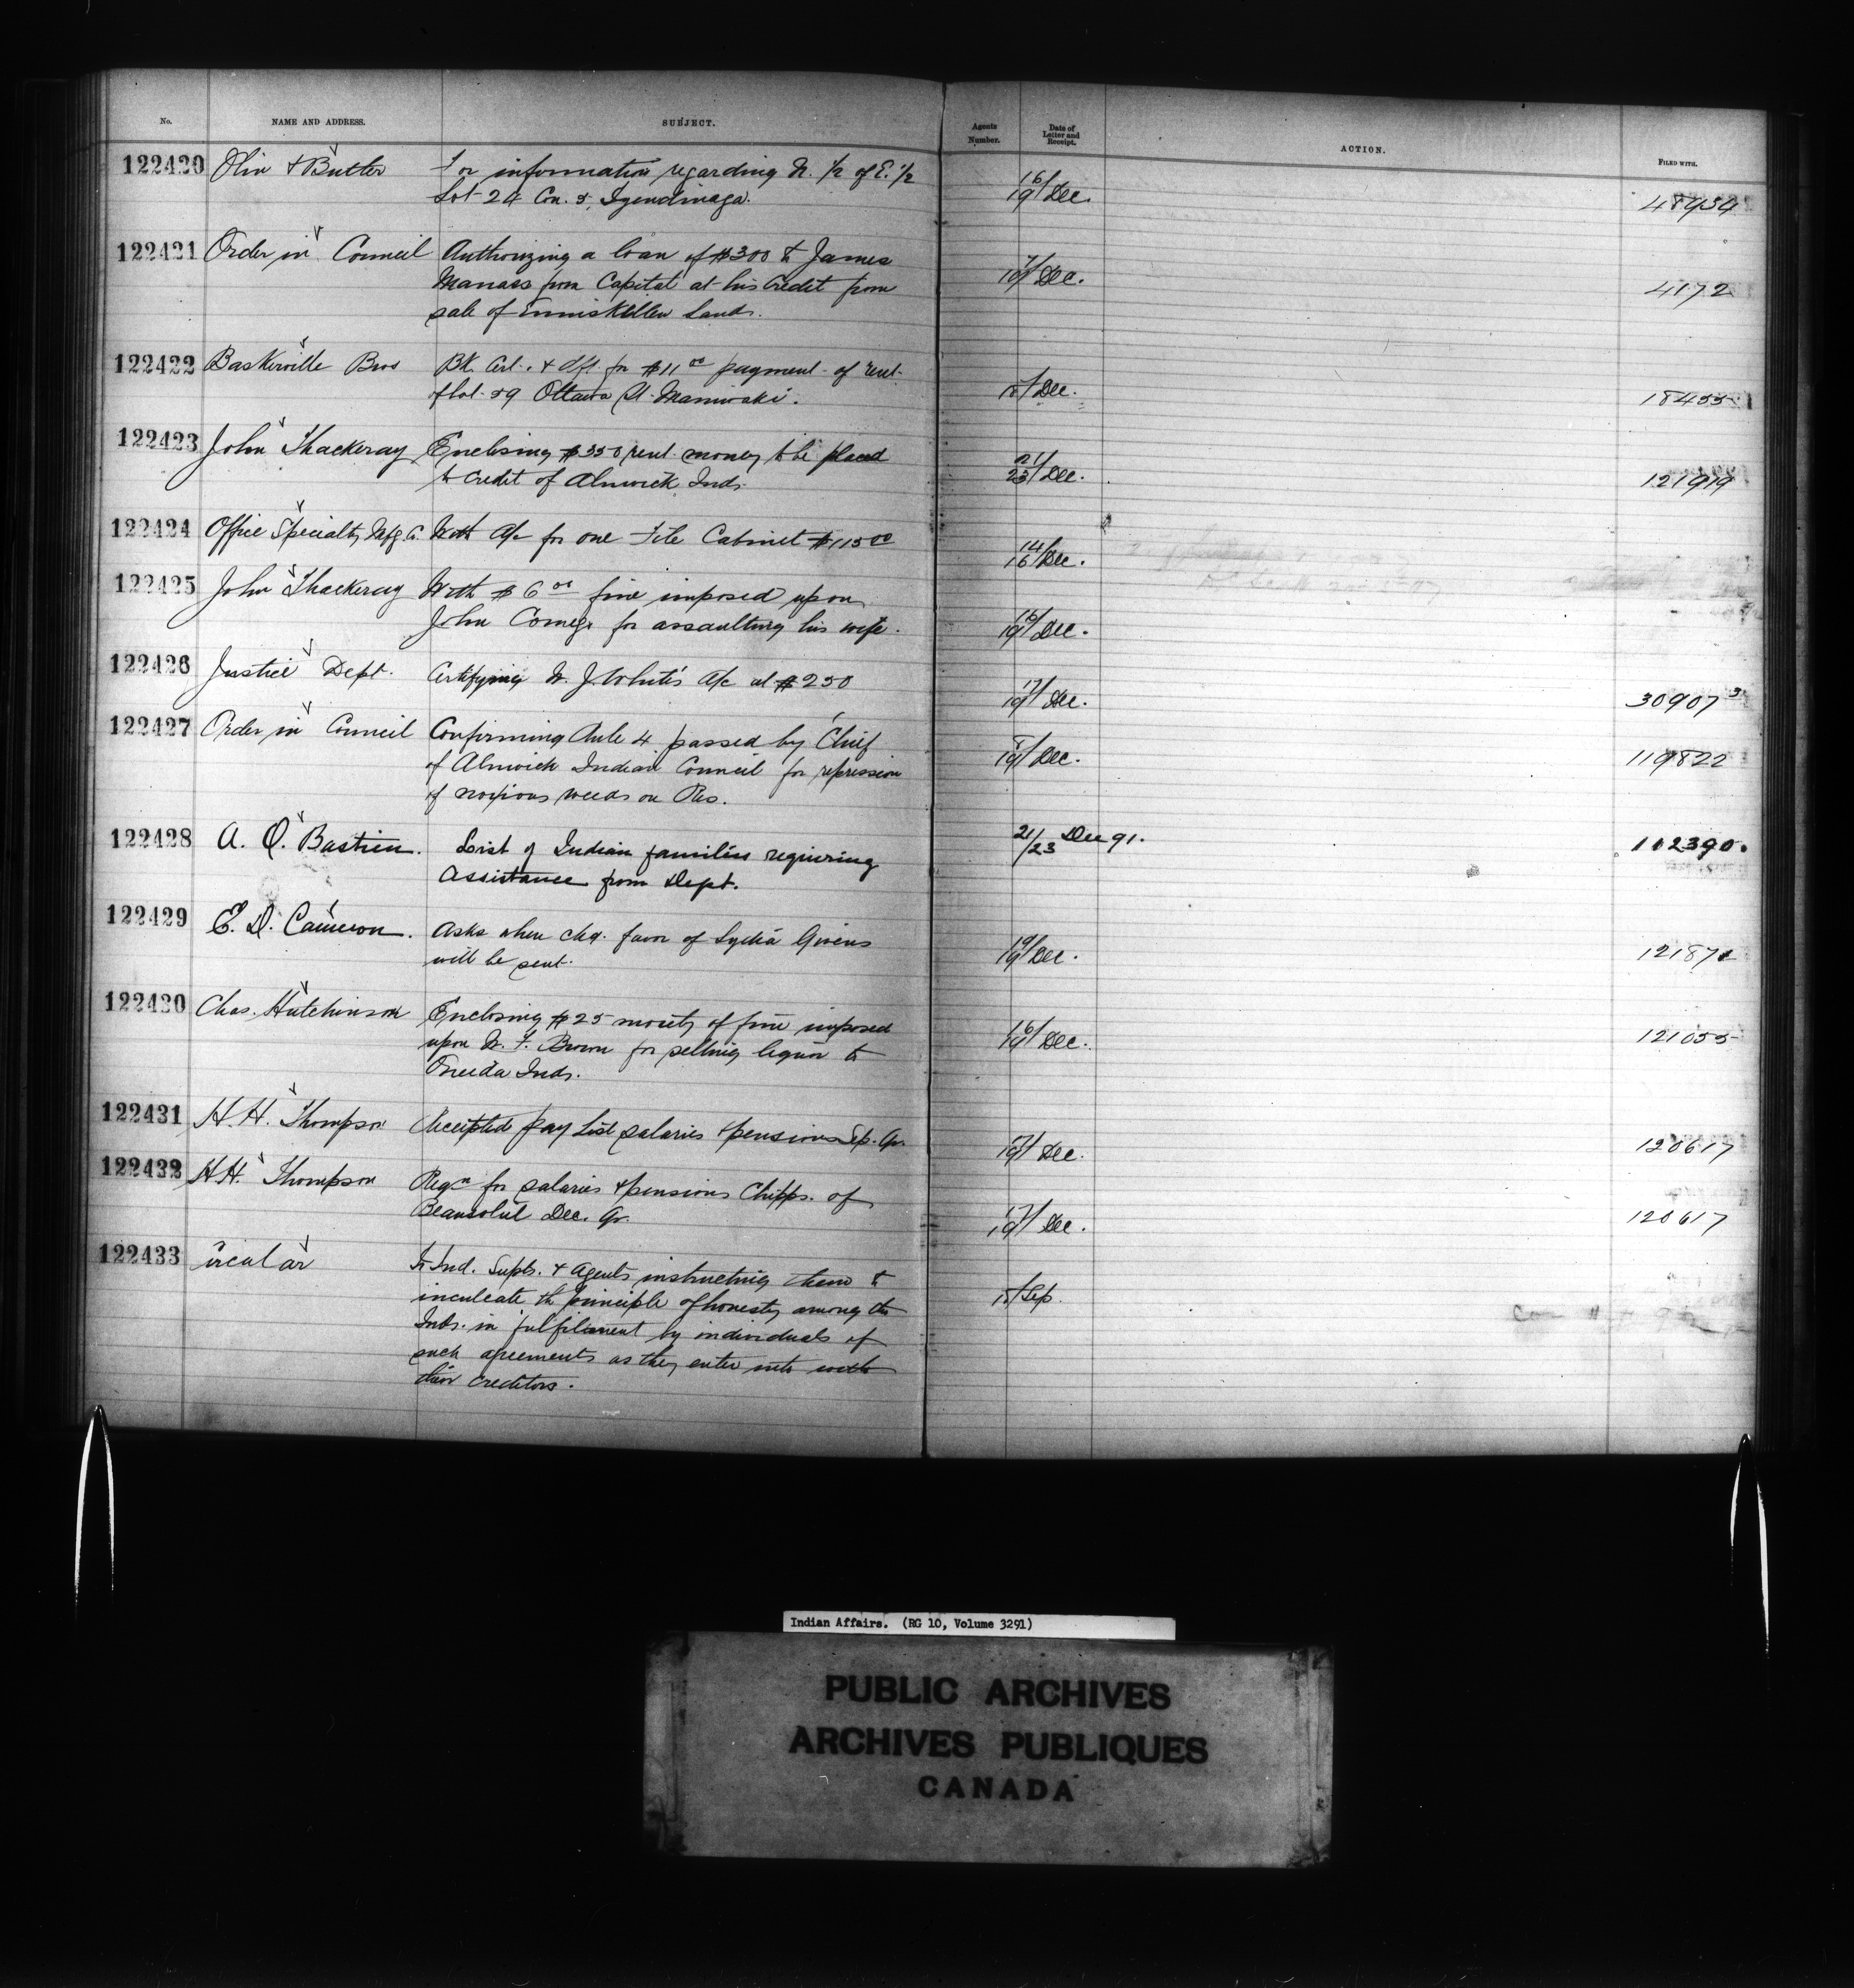 No. NAME AND ADDRESS. SUBJECT. Agents Number. Date of Letter and Receipt. ACTION. FILED WITH.
122420 Olin & Butler For information regarding N. 1/2 of E. 1/2 16/19 Dec. 48934
Lot 24 Con. 3, Tyendinaga.
122421 Order in Council Authorizing a loan of $300 to James 7/19 Dec. 4172
Manass from Capital at his Credit from
sale of Enniskillen Lands.
122422 Baskerville Bros Bk. Cert. & dft. for $11 00 payment of rent Dec. 18455
of lot 39 Ottawa St. Maniwaki.
122423 John Thackeray Enclosing $350 rent money to be placed 21/23 Dec. 121919
to credit of Alnwick Inds.
122424 Office Specialty Mfg Co. With a/c for one File Cabinet $115 00 14/16 Dec.
122425 John Thackeray With $6 00 fine imposed upon 16/19 Dec.
John Comego for assaulting his wife.
122426 Justice Dept. Certifying W. J. White's a/c at $250 17/19 Dec. 30907 3
122427 Order in Council Confirming Rule 4 passed by Chief 8/19 Dec. 119822
of Alnwick Indian Council for repression
of noxious weeds on Res.
122428 A. O. Bastien. List of Indian families requiring 21/23 Dec 91. 112390.
Assistance from Dept.
122429 E. D. Cameron. Asks when chq. favor of Lydia Givens 19 Dec. 121871
will be sent.
122430 Chas. Hutchinson Enclosing $25 moiety of fine imposed 16/19 Dec. 121055
upon W. F. Brown for selling liquor to
Oneida Inds.
122431 H. H. Thompson Receipted Pay List salaries & pensions Sep. Qr. 17/19 Dec. 120617
122432 H.H. Thompson Reqn for salaries & pensions Chipps. of 17/19 Dec. 120617
Beausoleil Dec. Qr.
122433 ircular To Ind. Supts. & Agents instructing them to Sep.
inculcate the principle of honesty among the
Inds. in fulfilment by individuals of
such agreements as they enter into with
their creditors.
Indian Affairs. (RG 10, Volume 3291)
PUBLIC ARCHIVES
ARCHIVES PUBLIQUES
CANADA